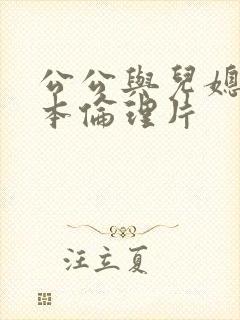 公公與兒媳
本倫理片
汪立夏